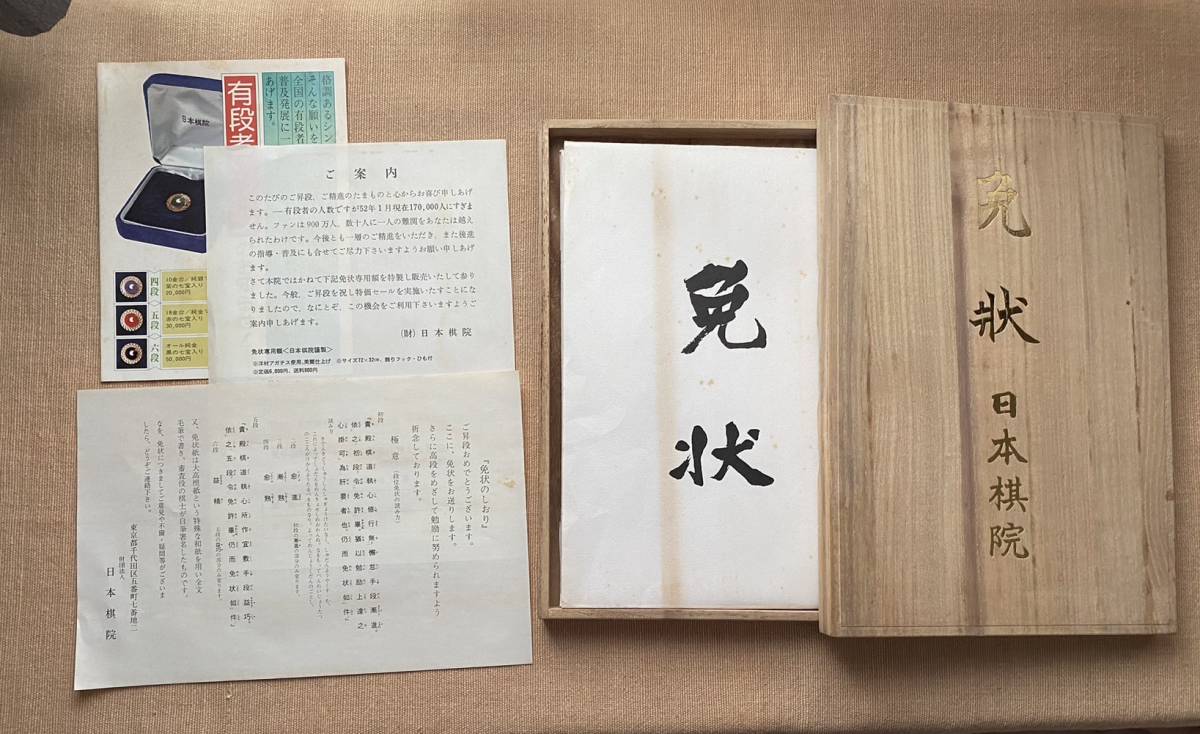 日本棋院
有段者
格調あるシン
そんな願いを
全国の有段者
普及発展に一
あげます。
四段
10金台/純銀
紫の七宝入り
20,000円
五段
18金台/純金
赤の七宝入り
30,000円
六段
オール純金
黒の七宝入り
50,000円
ご案内
このたびのご昇段、ご精進のたまものと心からお喜び申しあげ
ます。―有段者の人数ですが52年1月現在170,000人にすぎま
せん。ファンは900万人、数十人に一人の難関をあなたは越え
られたわけです。今後とも一層のご精進をいただき、また後進
の指導・普及にも合せてご尽力下さいますようお願い申しあげ
ます。
さて本院ではかねて下記免状専用額を特製し販売いたして参り
ました。今般、ご昇段を祝し特価セールを実施いたすことにな
りましたので、なにとぞ、この機会をご利用下さいますようご
案内申しあげます。
(財)日本棋院
免状専用額<日本棋院謹製>
※洋材アガチス使用、美麗仕上げ ※サイズ72×32cm、飾りフック・ひも付
※定価6,000円、送料800円
『免状のしおり』
ご昇段おめでとうございます。
ここに、免状をお送りします。
さらに高段をめざして勉励に努められますよう
祈念しております。
極意(段位免状の読み方)
初段
「貴殿棋道執心修行無懈怠手段漸進
依之初段令免許畢猶以勉励上達之
心掛可為肝要者也仍而免状如件」
読み方
二段
三段 漸熟
四段
五段
「貴殿棋道執心所作宜敷手段益巧
依之五段令免許畢仍而免状如件」
六段 益精
又、免状紙は大高檀紙という特殊な和紙を用い全文
毛筆で書き、審査役の棋士が自筆署名したものです。
なお、免状につきましてご意見や不備・疑問等がございま
したら、どうぞご連絡下さい。
東京都千代田区五番町七番地二
財団法人
日本棋院
免状
免状
日本棋院